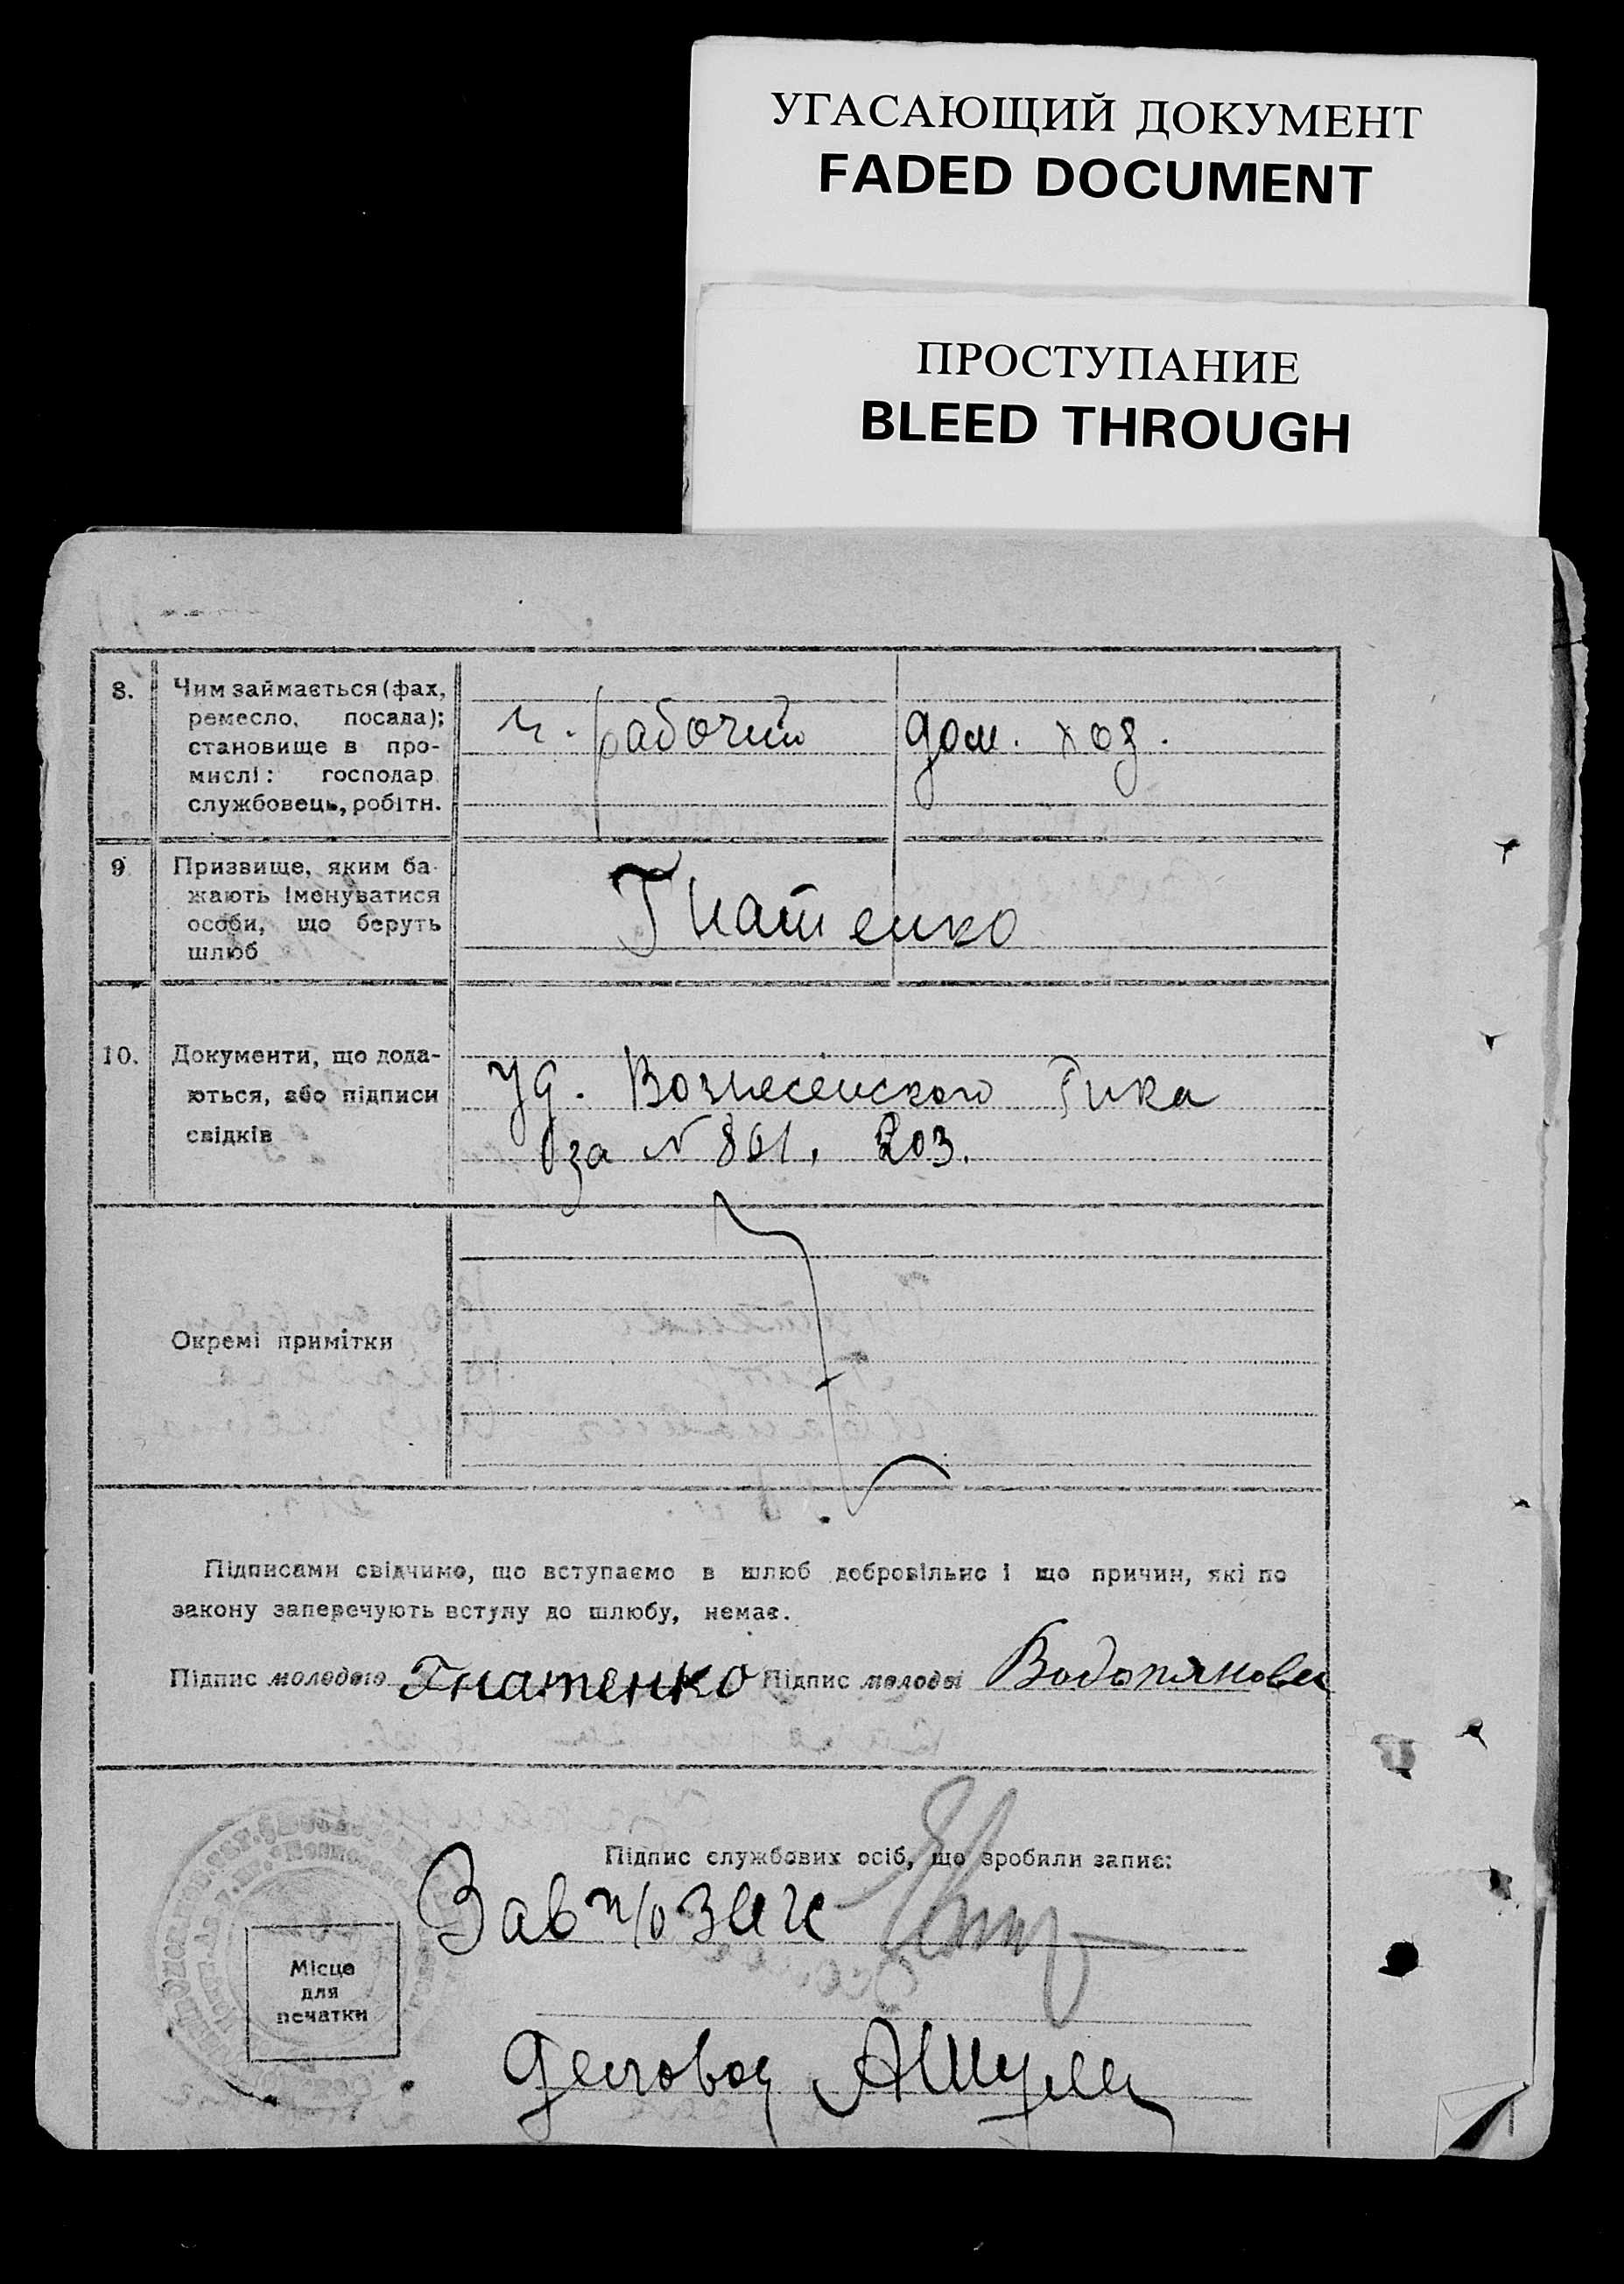 УГАСАЮЩИЙ ДОКУМЕНТ
FADED DOCUMENT
ПРОСТУПАНИЕ
BLEED THROUGH
8. Чим займається (фах,
ремесло, посада);
становище в про-
мислі: господар
службовець, робітн.
ч. рабочий дом. хоз.
9 Призвище, яким ба-
жають іменуватися
особи, що беруть
шлюб
Гнатенко
10. Документи, що дода-
ються, або підписи
свідків
Уд. Вознесенского Рика
за N 861, 203.
Окремі примітки
Підписами свідчимо, що вступаємо в шлюб добровільно і що причин, які по
закону заперечують вступу до шлюбу, немає.
Підпис молодого Гнатенко Підпис молодої Водопянова
Підпис службових осіб, що зробили запис:
Зав п/о ЗАГС
Місце
для
печатки
Деловод